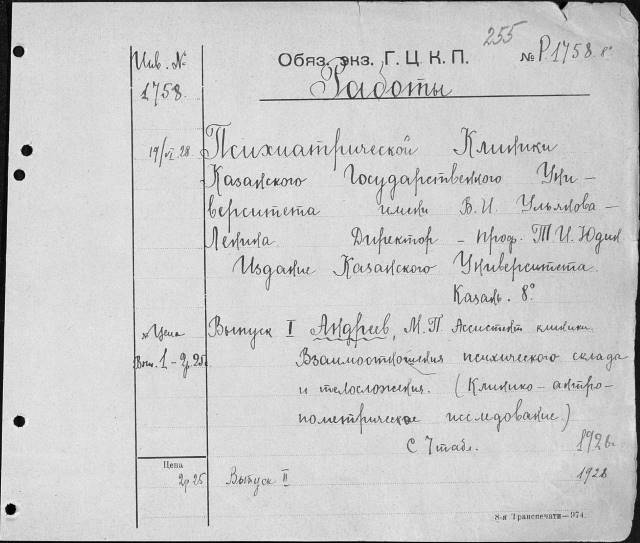 255
Обяз. экз. Г. Ц. К. П.
№ Р.1758
Работы
Инв. №
1758.
19/VI 28
Психиатрической Клиники
Казанского Государственного Уни-
верситета имени В. И. Ульянова-
Ленина. Директор - проф. Т. И. Юдин
Издание Казанского Университета.
Казань. 8°
Цена
Вып. 1 - 2р.25к
Выпуск I Андреев, М. П. Ассистент клиники.
Взаимоотношения психического склада
и телосложения. (Клинико-антро-
пометрическое исследование)
С 7 табл. 1926
Цена
2р 25
Выпуск II 1928
8-я Транспечати—974.